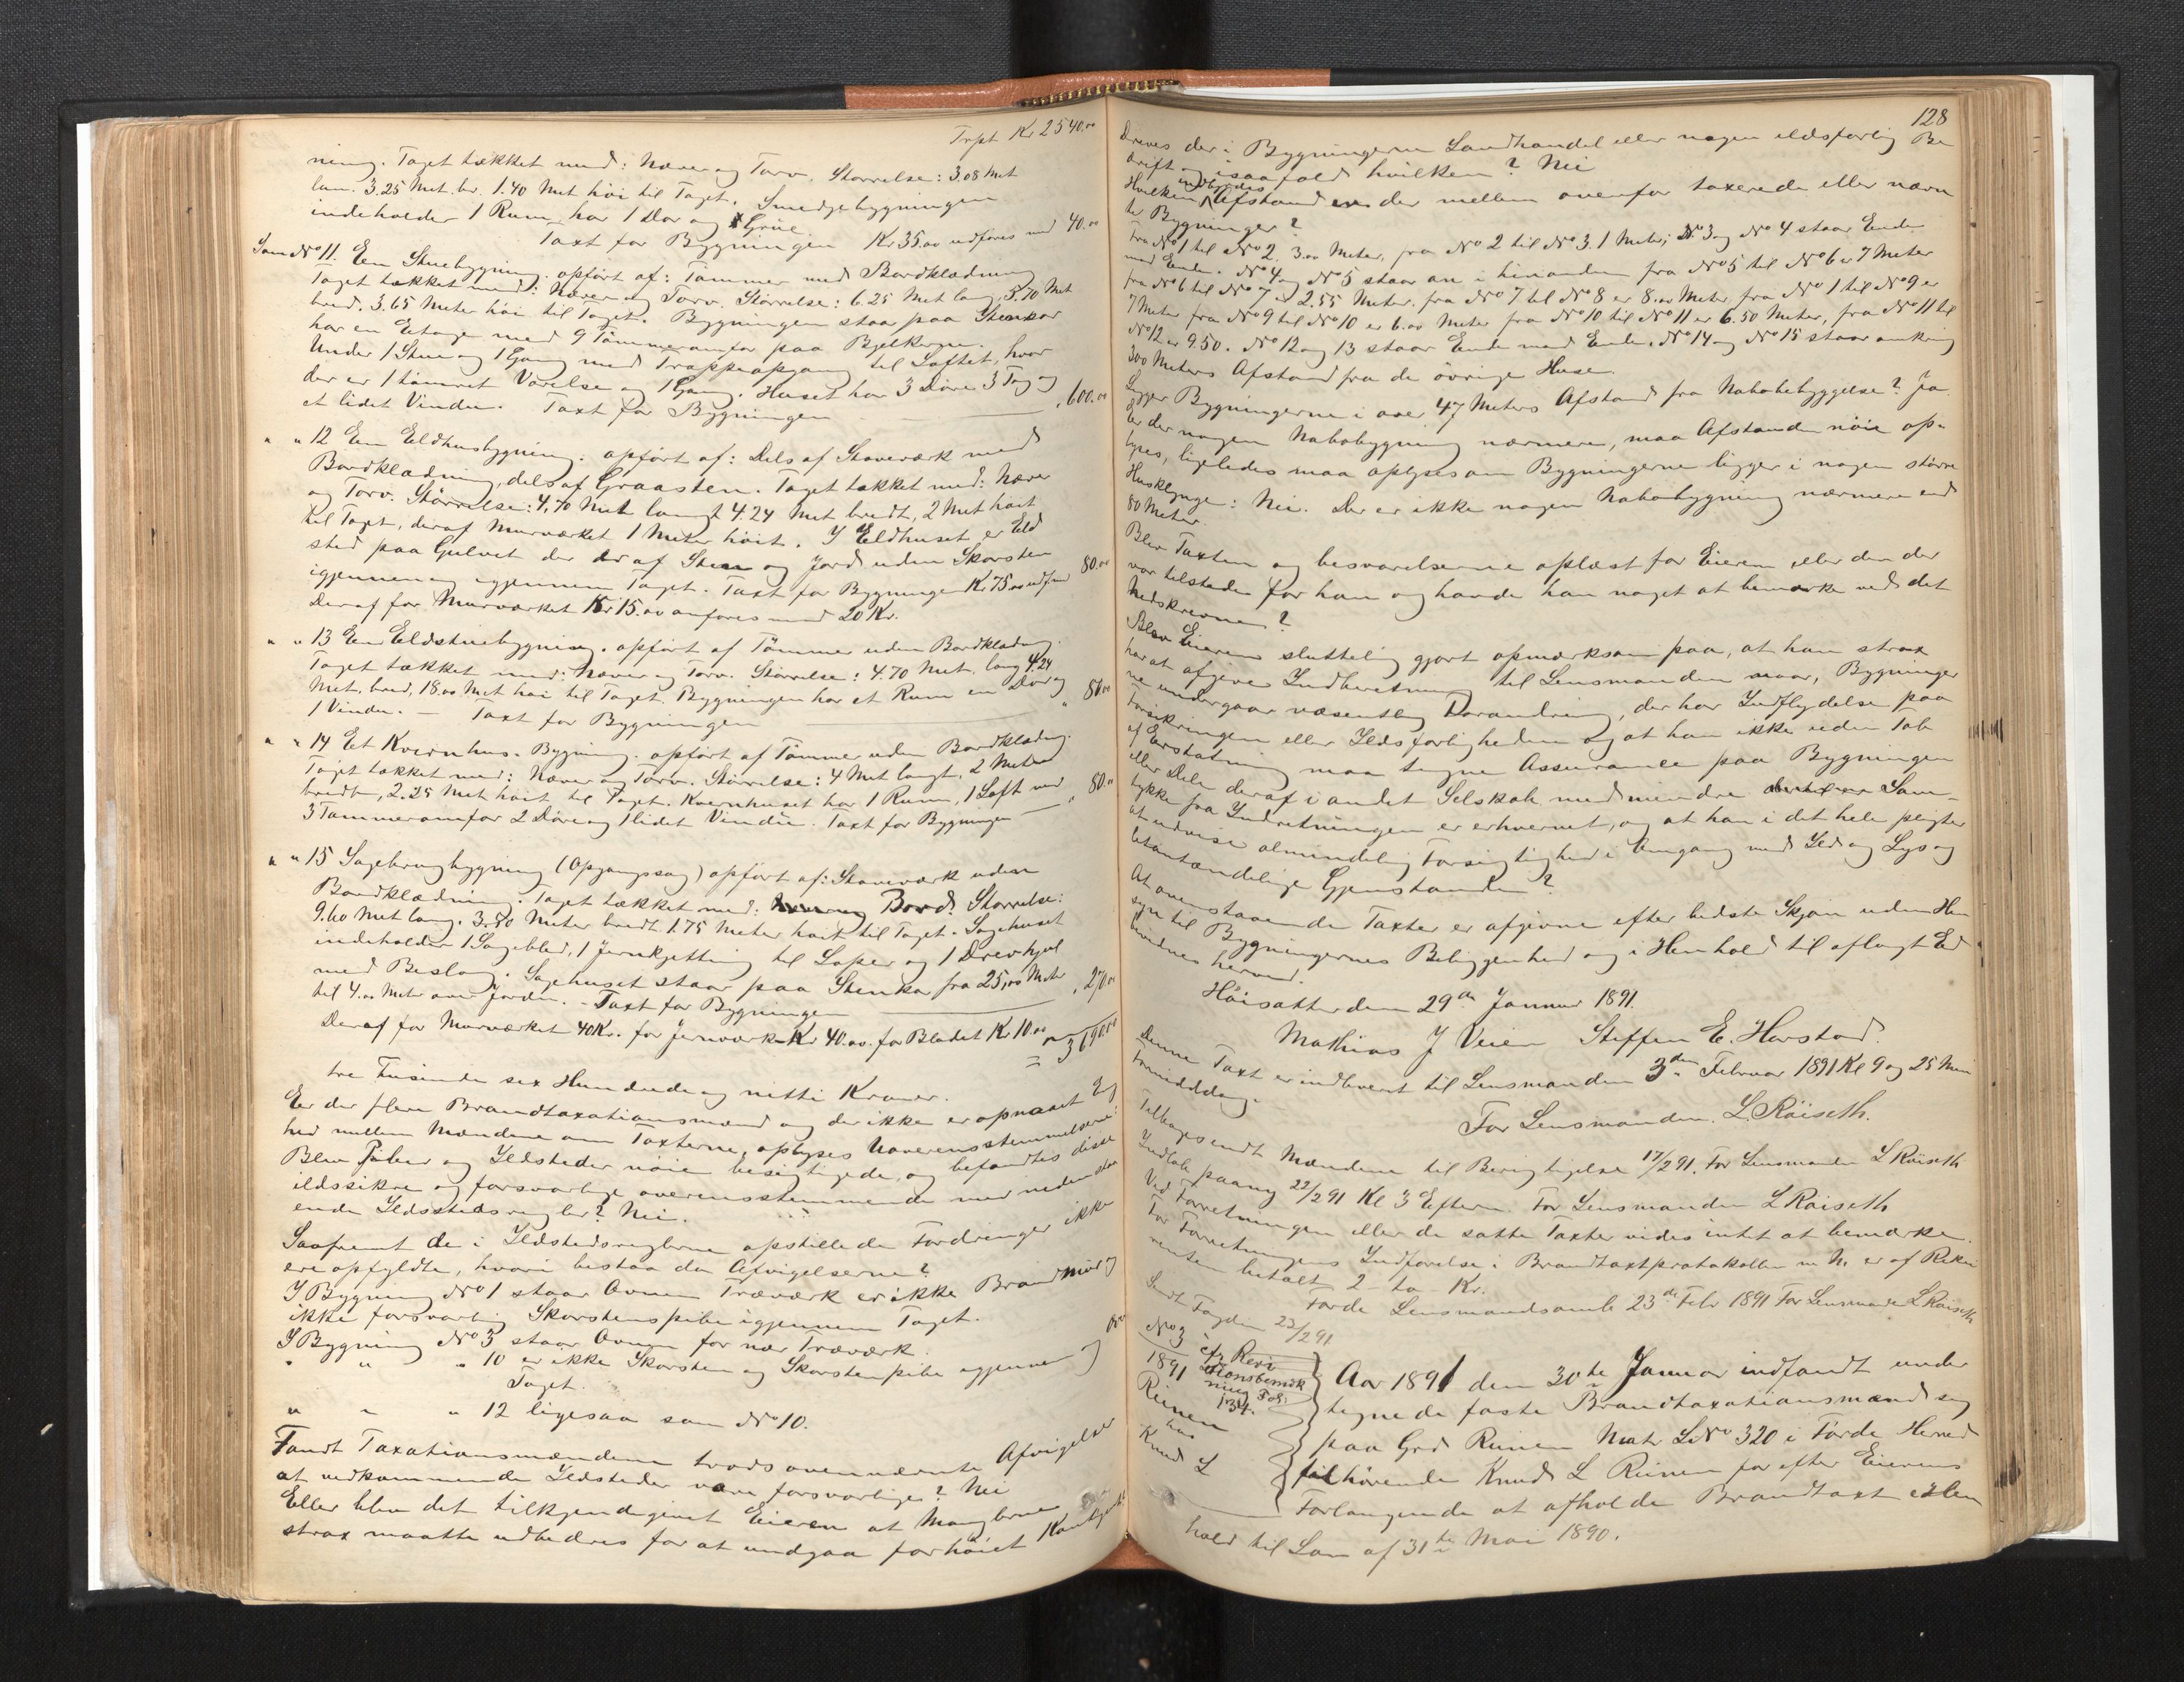 Trpt Kr 2540.00
ning. Taget tækket med: Næver og Torv. Størrelse: 3.08 Met
lan. 3.25 Met. br. 1.40 Met høi til Taget. Smedjebygningen
indeholder 1 Rum, har 1 Dør og Grüe.
Taxt for Bygningen Kr 35.00 udføres med 40.00
Som No 11. En Stuebygning. opført af: Tømmer med Bordklædning
Taget tækket med: Næver og Torv. Størrelse: 6.25 Met lang, 5.70 Met
bred. 3.65 Meter høi til Taget. Bygningen staar paa Stenkar
har en Etage med 9 Tømmeromfar paa Bjelkerne.
Under 1 Stue og 1 Gang med Trappeopgang til Loftet, hvor
der er 1 tømret Værelse og 1 Gang. Huset har 3 Døre 3 Fag og
et lidet Vindu. Taxt for Bygningen " 600.00
" " 12 Em Eldhusbygning. opført af: Dels af Staveværk med
Bordklædning, dels af Graasten. Taget tækket med: Næver
og Torv. Størrelse: 4.70 Met langt 4.24 Met bredt, 2 Met høit
til Taget, deraf Murværket 1 Meter høit. I Eldhuset er Eld
sted paa Gulvet der er af Sten og Jord uden Skorsten
igjennem og igjennem Taget. Taxt for Bygningen Kr 75.00 udføres 80.00
Deraf for Murværket Kr 15.00 anføres med 20 Kr.
" " 13 Em Eldstuebygning. opført af Tømmer uden Bordklædng.
Taget tækket med: Næver og Torv. Størrelse: 4.70 Met. lang 4.24
Met. bred, 18.00 Met høi til Taget. Bygningen har et Rum en Dør og
1 Vindu. — Taxt for Bygningen " 80.00
" " 14 Et Kvernhus-Bygning. opført af Tømmer uden Bordklædng.
Taget tækket med: Næver og Torv. Størrelse: 4 Met langt, 2 Meter
bredt, 2.25 Met høit til Taget. Kvernhuset har 1 Rum, 1 Loft med
3 Tømmeromfar 2 Døre og 1 lidet Vindu. Taxt for Bygningen " 80.00
" " 15 Sagbrugbygning (Opgangssag) opført af: Staveværk uden
Bordklædning. Taget tækket med: Bord. Størrelse:
9.60 Met lang. 3.80 Meter bredt 1.75 Meter høit til Taget. Saghuset
indeholder 1 Sagblad, 1 Jernkjetting til Løper og 1 Drevhjul
med Beslag. Saghuset staar paa Stenkar fra 25,00 Meter
til 4.00 Meter over Jorden. - Taxt for Bygningen " 270.00
Deraf for Murværket 40 Kr. for Jernværk Kr 40.00. for Bladet Kr 10.00 = 3690.00
tre Tusinde sex Hundrede og nitti Kroner.
Er der flere Brandtaxationsmænd og der ikke er opnaaet Enig
hed mellem Mændene om Taxterne, oplyses Uoverensstemmelserne:
Blev Piber og Ildsteder nøie besigtigede, og befandtes disse
ildssikre og forsvarlige overensstemmende med nedenstaa
ende Ildstedsregler? Nei.
Saafremt de i Ildstedsreglerne opstillede Fordringer ikke
ere opfyldte, hvori bestaa da Afvigelserne?
I Bygning No 1 staar Ovnen Træværk er ikke Brandmur og
ikke forsvarlig Skorstenspibe igjennem Taget.
I Bygning No 3 staar Ovnen for nær Træværk.
" " " 10 er ikke Skorsten og Skorstenpibe igjennem
Taget.
" " " 12 ligesaa som No 10.
Fandt Taxationsmændene trods ovennævnte Afvigelser
at vedkommende Ildsteder vare forsvarlige? Nei
Eller blev det tilkjendegivet Eieren at Manglerne
strax maatte udbedres for at undgaa forhøiet Kontigent
128
Dreves der i Bygningerne Landhandel eller nogen ildsfarlig Be
drift og isaafald hvilken? Nei
Hvilken indbyrdes Afstand er der mellem ovenfor taxerede eller nævn
te Bygninger?
Fra No 1 til No 2. 3.00 Meter, fra No 2 til No 3. 1 Meter; No 3 og No 4 staar Ende
mod Ende. No 4 og No 5 staar an i hinanden fra No 5 til No 6 er 7 Meter
fra No 6 til No 7 er 2.55 Meter. fra No 7 til No 8 er 8.00 Meter fra No 1 til No 9 er
7 Meter fra No 9 til No 10 er 6.00 Meter fra No 10 til No 11 er 6.50 Meter, fra No 11 til
No 12 er 9.50. No 12 og 13 staar Ende mod Ende. No 14 og No 15 staar omkring
300 Meters Afstand fra de øvrige Huse.
Ligger Bygningerne i over 47 Meters Afstand fra Nabobebyggelse? Ja.
Er der nogen Nabobygning nærmere, maa Afstanden nøie op-
lyses, ligeledes maa oplyses om Bygningerne ligger i nogen større
Husklynge: Nei. Der er ikke nogen Nabobygning nærmere end
80 Meter.
Blev Taxten og besvarelserne oplæst for Eieren eller den der
var tilstede for ham og havde han noget at bemærke ved det
Nedskrevne?
Blev Eieren sluttelig gjort opmærksom paa, at han strax
har at afgive Indberetning til Lensmanden naar, Bygninger
ne undergaar væsentlig Forandring, der har Indflydelse paa
Forsikringen eller Ildsfarligheden og at han ikke uden Tab
af Erstatning maa tegne Assurance paa Bygningen
eller Dele deraf i andet Selskab medmindre Sam-
tykke fra Indretningen er erhvervet, og at han i det hele pligter
at udvise almindelig Forsigtighed i Omgang med Ild og Lys og
letantændelige Gjenstande?
At ovenstaaende Taxter er afgivne efter bedste Skjøn uden Hen
syn til Bygningernes Beliggenhed og i Henhold til aflagt Ed
bevidnes herved.
Høisæter den 29de Januar 1891.
Mathias J Veien Steffen E. Harstad.
Denne Taxt er indleveret til Lensmanden 3den Februar 1891 Kl 9 og 25 Min
Formiddag.
For Lensmanden. L. Røiseth.
Tilbagesendt Mændene til Berigtigelse 17/2 91. For Lensmanden L Røiseth
Indløb paany 22/2 91 Kl 3 Efterm. For Lensmanden L Røiseth
Ved Forretningen eller de satte Taxter vides intet at bemærke.
For Forretningens Indførelse i Brandtaxtprotokollen m.v. er af Rekvi
renten betalt 2 - to Kr.
Førde Lensmandsomb 23de Febr 1891 For Lensmanden L Røiseth
Sendt Fogden 23/2 91
No 3
1891
Reinen
hos
Knud L
cfr Revi
sionsbemærk
ning Fol:
134.
Aar 1891 den 30te Januar indfandt under
tegnede faste Brandtaxationsmænd sig
paa Grd Reinen Matr LNo 320 i Førde Herred
tilhørende Knud L Reinen for efter Eierens
Forlangende at afholde Brandtaxt i Hen
hold til Lov af 31te Mai 1890.